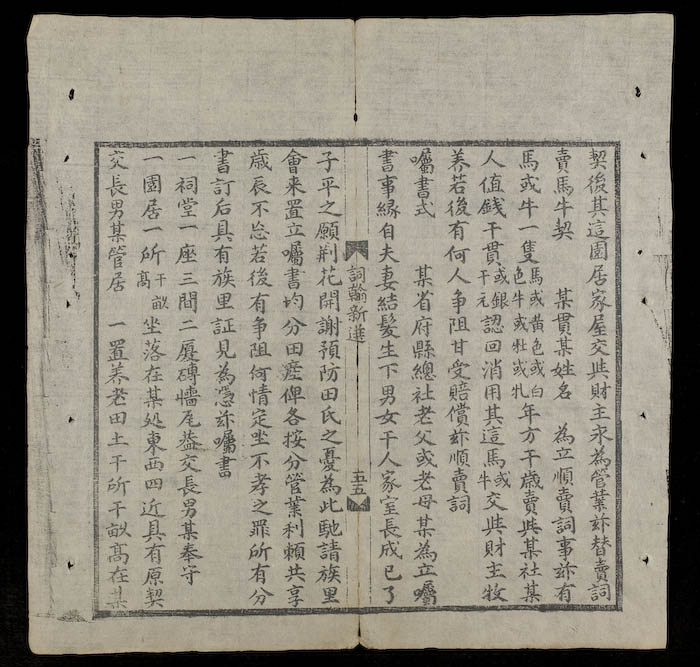 契後其這園居家屋交與財主永為管業玆替賣詞
賣馬牛契　某貫某姓名　為立順賣詞事玆有
馬或牛一隻馬或黄色或白色牛或牡或牝年方干歲賣與某社某
人值錢干貫或銀干元認回消用其這馬或牛交與財主牧
养若後有何人争阻甘受賠償玆順賣詞
囑書式　某省府縣總社老父或老母某為立囑
書事縁自夫妻結髪生下男女干人家室長成已了
詞翰新選　五五
子平之願荆花開謝預防田氏之憂為此馳請族里
會來置立囑書均分田產俾各按分管業利賴共享
歳辰不忘若後有争阻何情定坐不孝之罪所有分
書訂后具有族里証見為憑玆囑書
一祠堂一座三間二厦磚墻瓦盖交長男某奉守
一園居一所干畝高坐落在某処東西四近具有原契
交長男某管居　一置养老田土干所干畝高在某